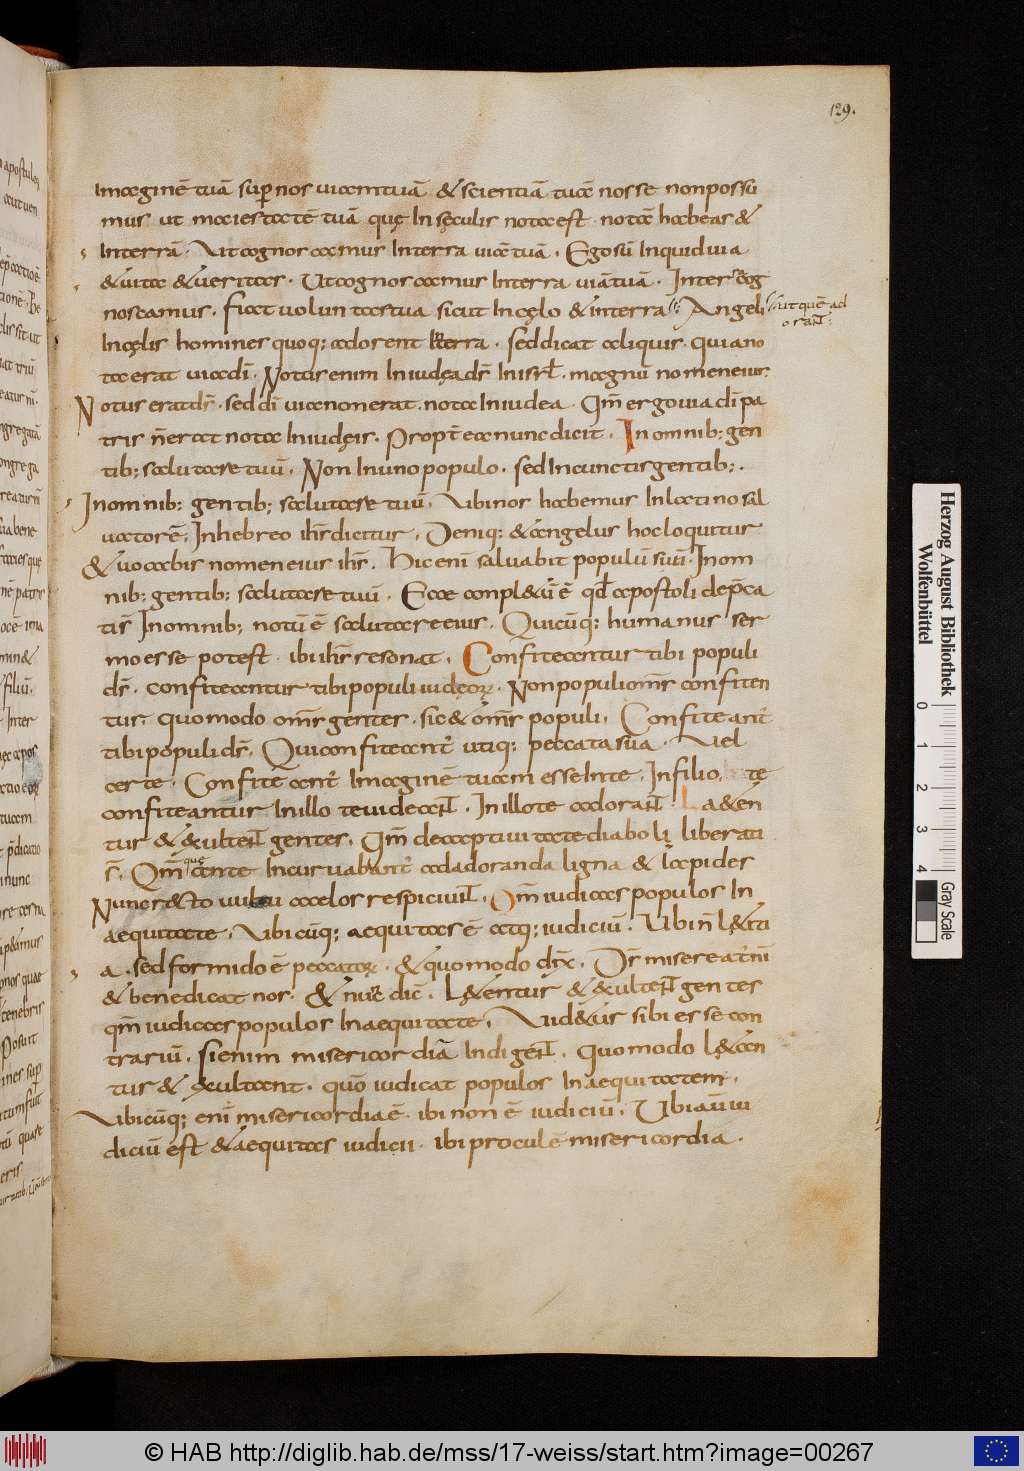 129.
Imaginē tuā sup nos uiam tuā & scientiā tuā nosse non possu
mus ut maiestatē tuā quę In sęculis nota est · notā habeas &
Interrā · Ut cognoscamus Interra uiā tuā · Ego sū Inquid uia
& uita & ueritas · Ut cognoscamus Interra uiā tuā · Inter
noscamus · fiat uoluntas tua sicut In cęlo & interra Angeli
ut quē ad
orant
In cęlis homines quoq; adorent terra · sed dicat aliquis · qui a no
ta erat uia dī · Notus enim In iudęa ds̄ In isrł · magnū nomen eius
Notus erat ds̄ · sed dī uia non erat · nota In iudea · Qm̄ ergo uia dī pa
tris n̄ erat nota In iudęis · Propt̄ ea nunc dicit · In omnib; gen
tib; salutare tuū · Non In uno populo · sed In cunctis gentib; ·
In omnib; gentib; salutare tuū · Ubi nos habemus In latino sal
uatorē · In hebreo ihs̄ dicitur · Deniq; & angelus hoc loquitur
& uocabis nomen eius ihs̄ · Hic enī saluabit populū suū · In om
nib; gentib; salutare tuū · Ecce conpl&ū ē qd̄ apostoli dep̄ca
tis In omnib; notū ē salutare eius · Quicūq; humanus ser
mo esse potest · ibi ihs̄ resonat · Confiteantur tibi populi
ds̄ · confiteantur tibi populi iudęoꝝ · Non populi oms̄ confiten
tur · quomodo oms̄ gentes · sic & oms̄ populi · Confiteant̄
tibi populi ds̄ · Qui confiteant̄ utiq; peccata sua · Uel
certe · Confiteant̄ Imaginē tuam esse In te · In filio · te
confiteantur In illo te uideant · In illo te adorant · La&en
tur & exultent gentes · Qm̄ deceptiui tate diaboli liberati
s̄ · Qm̄
que
ante Incuruabant̄ ad adoranda ligna & lapides
Nunc recto uultu caelos respiciunt · Qm̄ iudicas populos In
aequitate · Ubicūq; aequitas ē atq; iudiciū · Ibi n̄ l&iti
a · sed formido ē peccatoꝝ · & quomodo dix̄ · Ds̄ misereat̄ nr̄i
& benedicat nos · & nūc dic̄ · L&entur & exultent gentes
qm̄ iudicas populos In aequitate · Uid&ur sibi esse con
trariū · si enim misericordiā Indigent · quomodo l&an
tur & exultant · quō iudicat populos In aequitatem ·
Ubicūq; enī misericordia ē · ibi non ē iudiciū · Ubi aū iu
diciū est & aequitas iudicii · ibi procul ē misericordia ·
Herzog August Bibliothek
Wolfenbüttel
0 1 2 3 4
Gray Scale
© HAB http://diglib.hab.de/mss/17-weiss/start.htm?image=00267